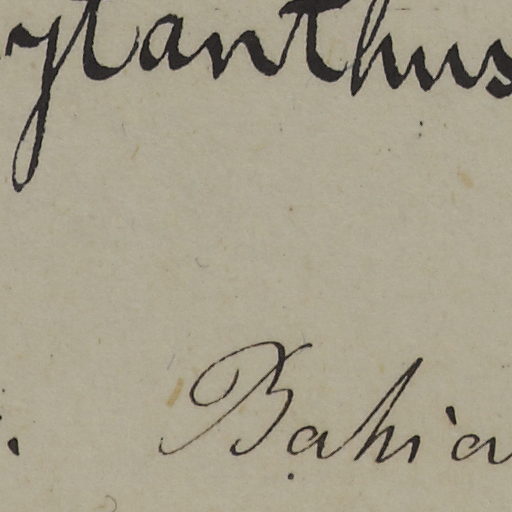 ytanthus
Bahia